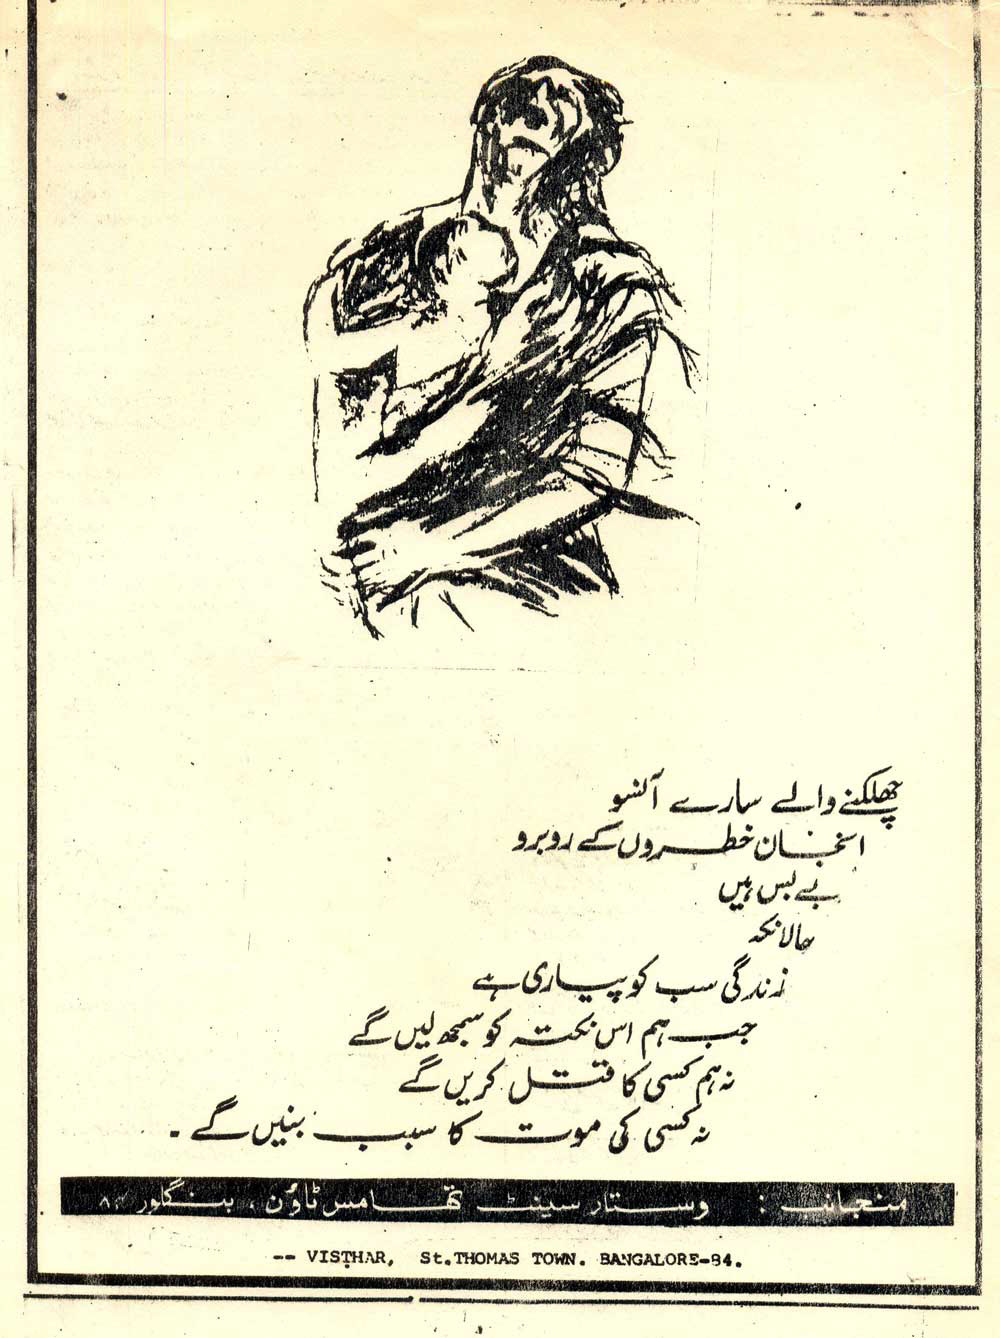 چھلکنے والے سارے آنسو
انجان خطروں کے روبرو
بے بس ہیں
حالانکہ
زندگی سب کو پیاری ہے
جب ہم اس نکتہ کو سمجھ لیں گے
نہ ہم کسی کا قتل کریں گے
نہ کسی کی موت کا سبب بنیں گے ۔
منجانب : وستار سینٹ تھامس ٹاؤن ، بنگلور ۸۴
-- VISTHAR, St.THOMAS TOWN. BANGALORE-84.